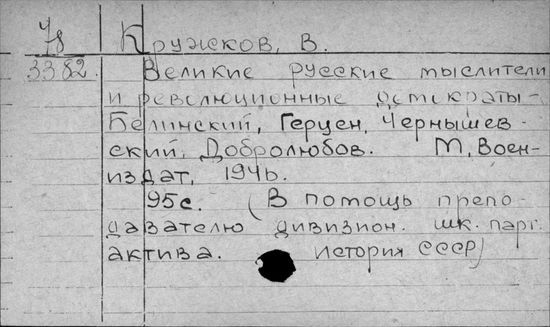 78 Кружков, В.
3382. Великие русские мыслители
и революционные демократы-
Белинский, Герцен, Чернышев-
ский, Добролюбов. М, Воен-
издат, 1946.
95с. (В помощь препо-
давателю дивизион. шк. парт.
актива. История СССР)